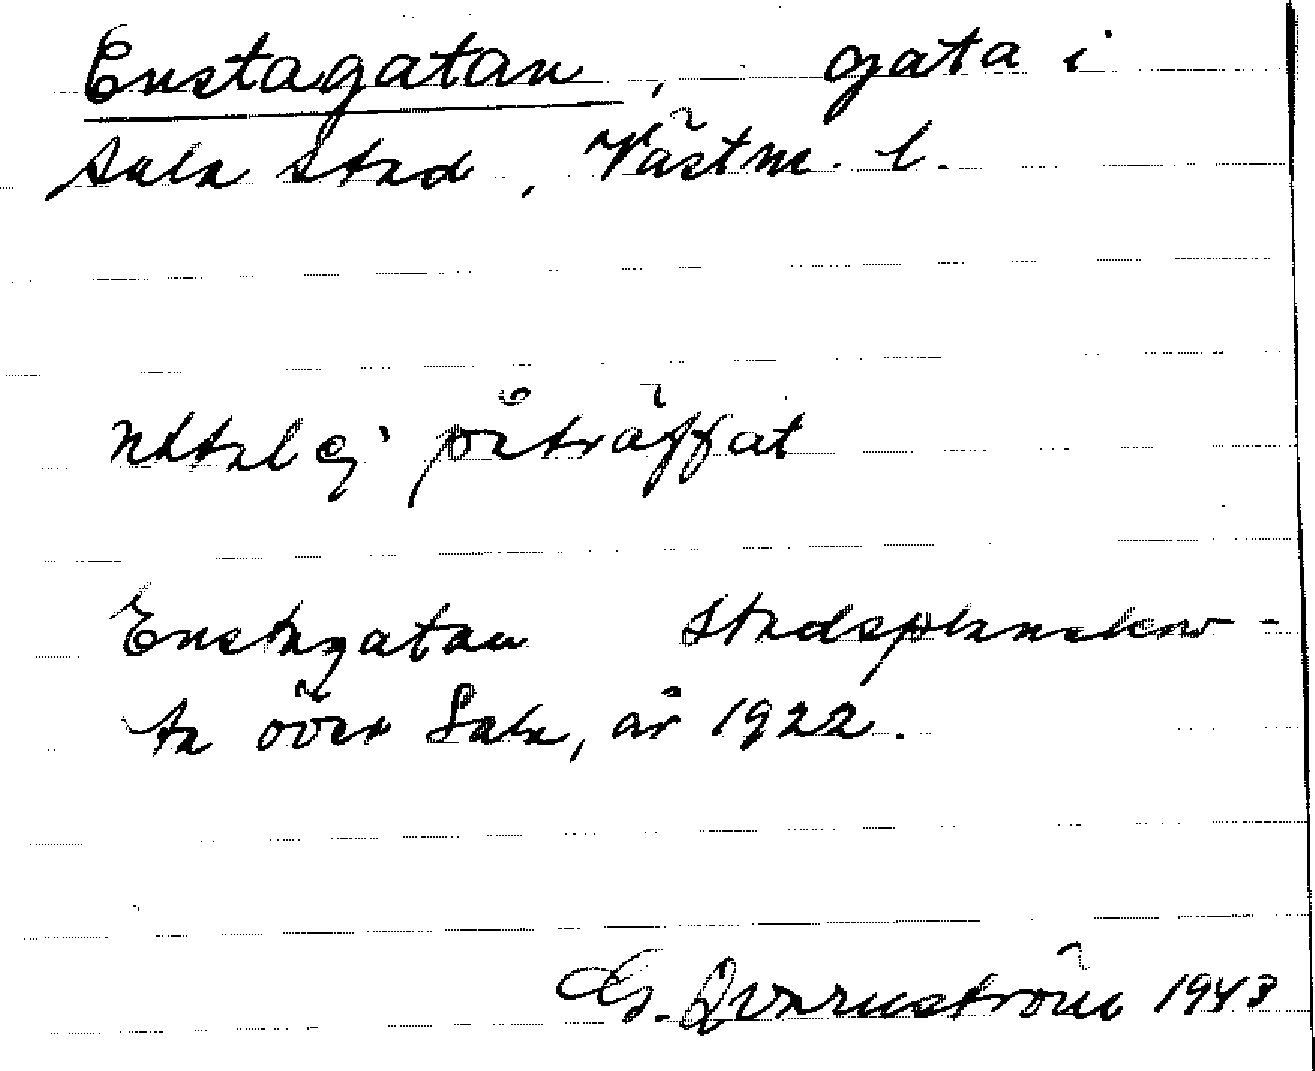 Enstagatan, gata i
Sala stad, Västm. l.
Uttal ej påträffat
Enstagatan Stadsplanskar-
ta över Sala, år 1922.
G. Qvarnström 1943